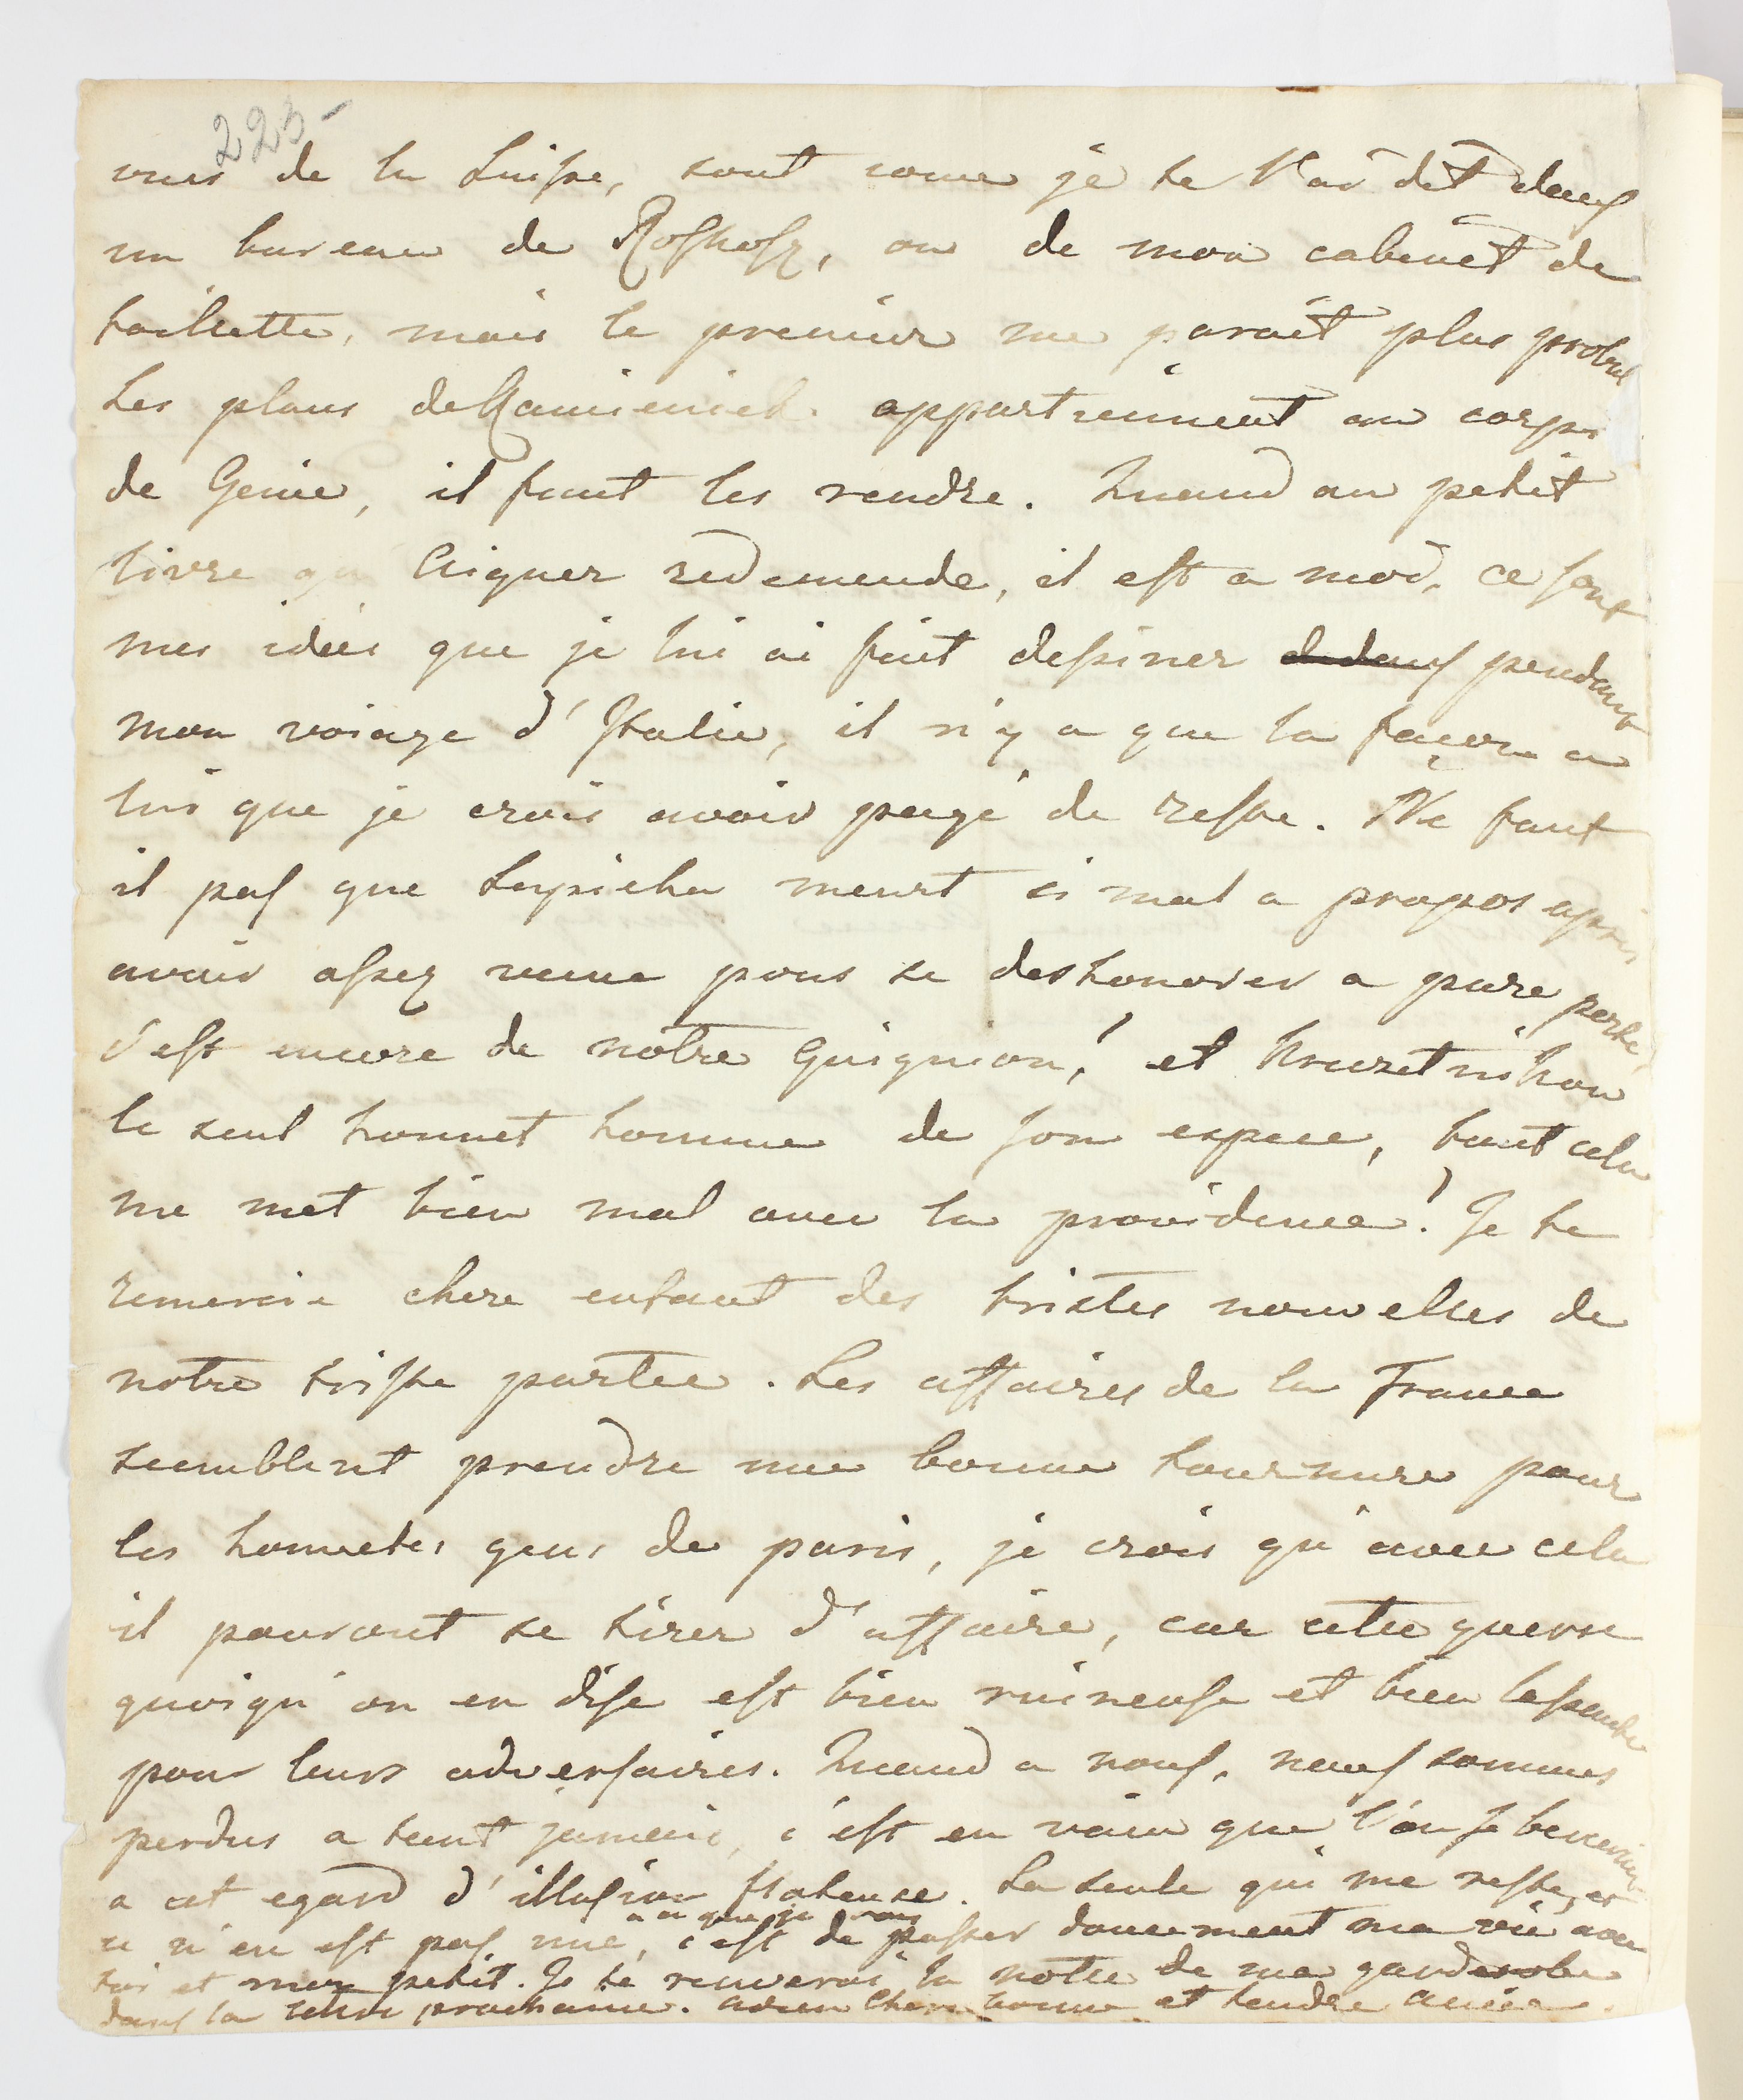 223-
vues de la Suisse, sont come je te l'ai dit dans
un bureau de Roskosz, ou de mon cabinet de
toilette, mais le premier me parait plus probal
Les plans de Kamieniek appartiennent au corps
de Genie, il faut les rendre. Quand au petit
livre qu' Aigner redemende, il est a moi, ce sont
mes idées que je lui ai fait dessiner pendant
mon voiage d'Italie, il n'y a que la façon a
lui que je crois avoir payé de reste. Ne faut
il pas que meurt si mal a propos après
avoir assez vecue pour se deshonorer a pure perte
c'est encore de notre Guignion! et
le seul honnet homme de son espece, tout cela
me met bien mal avec la providence! Je te
remercie chere enfant des tristes nouvelles de
notre triste partie. Les affaires de la France
semblent prendre une bonne tournure pour
les honnetes gens de paris, je crois qu'avec cela
il pouront se tirer d'affaire, car cette guerre
quoiqu'on en dise est bien ruineuse et bien lassante
pour leurs adversaires. Quand a nous, nous sommes
perdus a tout jamais, c'est en vain que l'on se
a cet egard d'illusion flateuse. La seule qui me reste, et
a ce que je crois
ce n'en est pas une, c'est de passer doucement ma vie avec
toi et mon petit. Je te renverai la notte de ma garderobe
dans la lettre prochaine. adieu chere bonne et tendre amie.